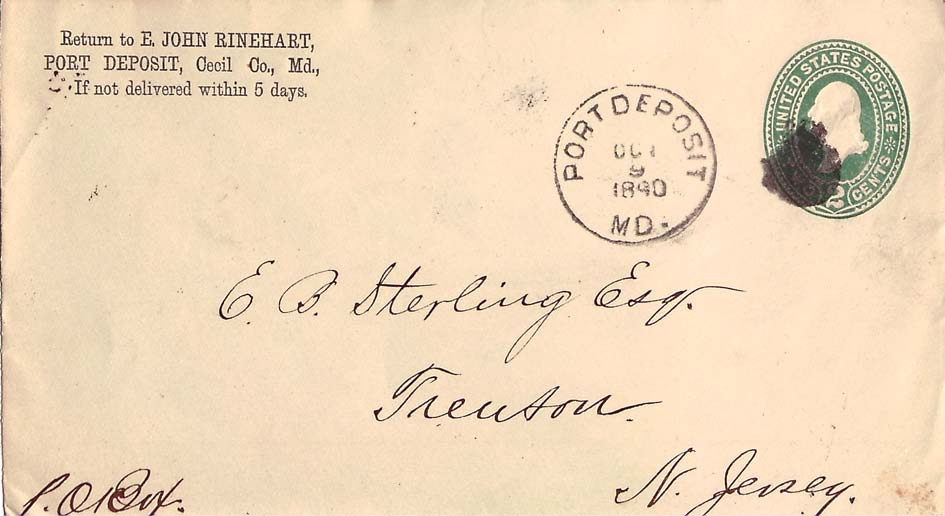 Return to E. JOHN RINEHART,
PORT DEPOSIT, Cecil Co., Md.,
If not delivered within 5 days.
PORT DEPOSIT
OCT
9
1890
MD.
UNITED STATES POSTAGE
2 CENTS
E. B. Sterling Esq.
Trenton
N. Jersey.
P.O. Box.